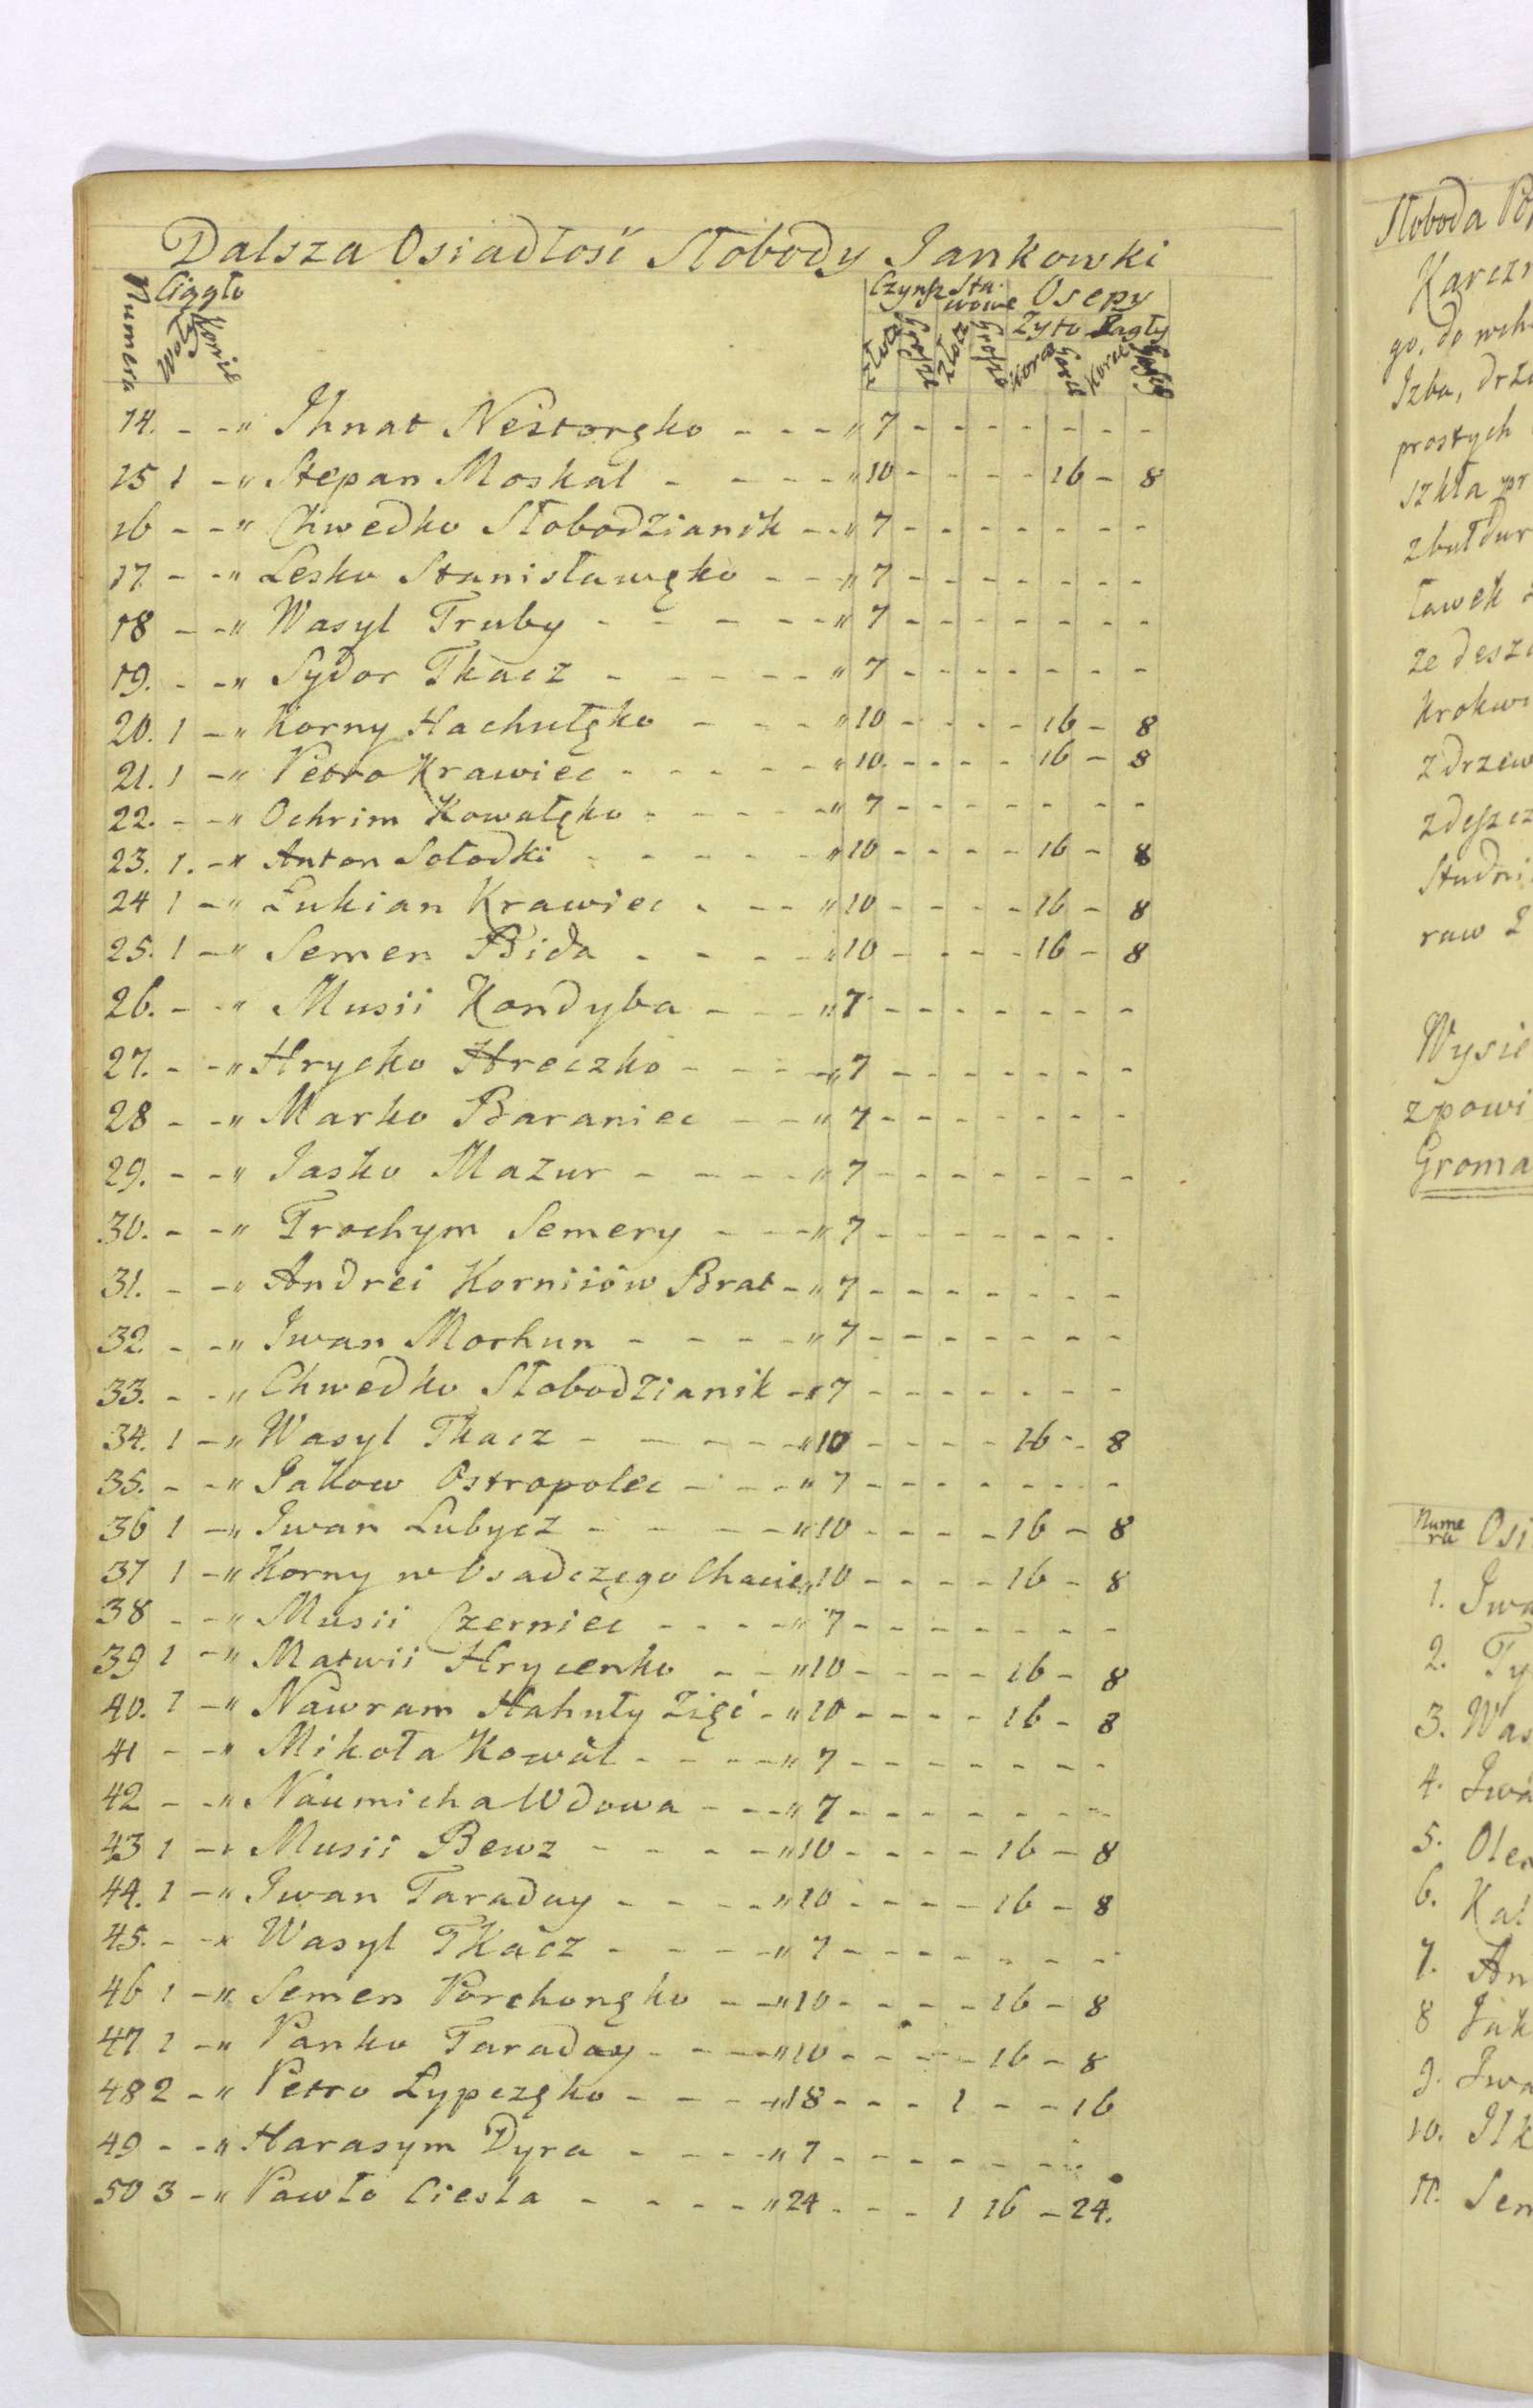 Dalsza Osiadłość Słobody Jankowki
Numera Ciągło Woły Konie Czynsz Sta-wowe Osepy
Żyto Jagły
Złote Grosze Złote Grosze Korce Garce Korce Garce
14. - - " Ihnat Nestoręko - - - " 7 - - - - - - -
15 1 - " Stepan Moskal - - - - " 10 - - - - 16 - 8
16 - - " Chwedko Słobodzianik - - " 7 - - - - - - -
17. - - " Lesko Stanisławęko - - " 7 - - - - - - -
18 - - " Wasyl Truby - - - - - " 7 - - - - - - -
19. - - " Sydor Tkacz - - - - - " 7 - - - - - - -
20. 1 - " Korny Hachułęko - - - " 10 - - - - 16 - 8
21. 1 - " Petro Krawiec - - - - - " 10. - - - - 16 - 8
22. - - " Ochrim Kowałęko - - - - " 7 - - - - - - -
23. 1. - " Anton Sołodki - - - - - " 10 - - - - 16 - 8
24 1 - " Łukian Krawiec - - - " 10 - - - - 16 - 8
25. 1 - " Semen Bida - - - - " 10 - - - - 16 - 8
26. - - " Musii Kondyba - - - " 7 - - - - - - -
27. - - " Hrycko Hreczko - - - - " 7 - - - - - - -
28 - - " Marko Baraniec - - " 7 - - - - - - -
29. - - " Jasko Mazur - - - - - " 7 - - - - - - -
30. - - " Trochym Semery - - - " 7 - - - - - - -
31. - - " Andrei Korniiów Brat - " 7 - - - - - - -
32 - - " Iwan Morhun - - - - - " 7 - - - - - - -
33. - - " Chwedko Słobodzianik - " 7 - - - - - - -
34. 1 - " Wasyl Tkacz - - - - - " 10 - - - - 16 - 8
35. - - " Jakow Ostropolec - - - " 7 - - - - - - -
36 1 - " Iwan Lubycz - - - - - " 10 - - - - 16 - 8
37 1 - " Korny w Osadczego Chacie " 10 - - - - 16 - 8
38 - - " Musii Czerniec - - - - " 7 - - - - - - -
39 1 - " Matwii Hrycenko - - " 10 - - - - 16 - 8
40. 1 - " Nawram Hahuły Zięć - " 10 - - - - 16 - 8
41 - - " Mikoła Kowal - - - - " 7 - - - - - - -
42 - - " Naumicha Wdowa - - - " 7 - - - - - - -
43 1 - " Musii Bewz - - - - - " 10 - - - - 16 - 8
44. 1 - " Iwan Taraday - - - - " 10 - - - - 16 - 8
45. - - " Wasyl Tkacz - - - - - " 7 - - - - - - -
46 1 - " Semen Porchonęko - - " 10 - - - - 16 - 8
47 1 - " Panko Taraday - - - - " 10 - - - - 16 - 8
48 2 - " Petro Łypczęko - - - - " 18 - - - 1 - - 16
49 - - " Harasym Dyra - - - - " 7 - - - - - - -
50 3 - " Pawło Ciesla - - - - " 24 - - - 1 16 - 24.
Słoboda
go, do
Izba,
prostych
szkła
ławek
ze
Gromada
Nume
ra
1.
2.
3.
4.
5.
6.
7.
8
9.
10.
11.